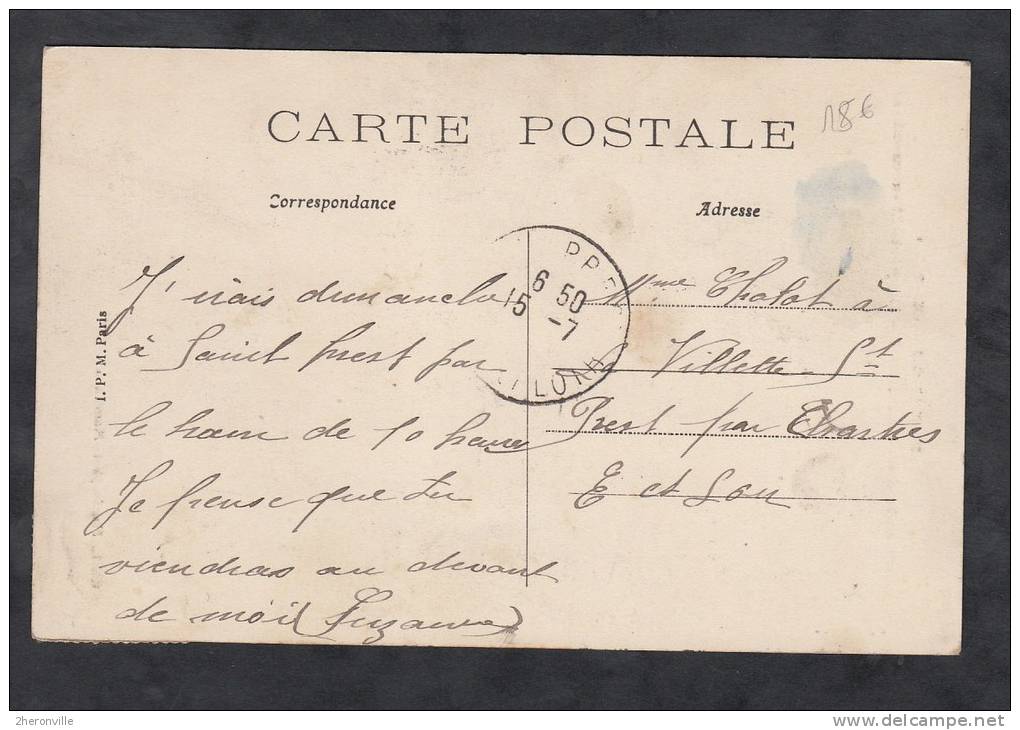 18 €
CARTE POSTALE
Correspondance
Adresse
J'irais dimanche
à Saint Prest par
le train de 10 heures
Je pense que tu
viendras au devant
de moi (Suzanne)
6 50
15 -7
Mme Cholot à
Villette St
Prest par Chartres
E et Loir
I. P. M. Paris
2heronville
www.delcampe.net